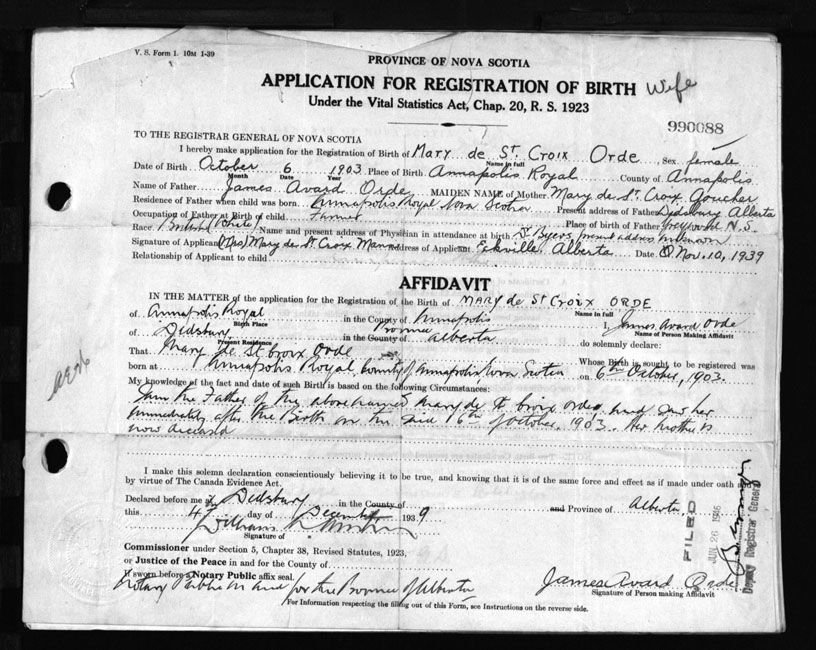 V. S. Form 1. 10M 1-39
PROVINCE OF NOVA SCOTIA
APPLICATION FOR REGISTRATION OF BIRTH Wife
Under the Vital Statistics Act, Chap. 20, R. S. 1923
990088
TO THE REGISTRAR GENERAL OF NOVA SCOTIA
I hereby make application for the Registration of Birth of Mary de St. Croix Orde Sex female
Name in full
Date of Birth October 6 1903 Place of Birth Annapolis Royal County of Annapolis
Month Date Year
Name of Father James Avard Orde MAIDEN NAME of Mother Mary de St. Croix Goucher
Residence of Father when child was born Annapolis Royal Nova Scotia Present address of Father Didsbury Alberta
Occupation of Father at Birth of child Farmer Place of birth of Father N.S.
Race British (White) Name and present address of Physician in attendance at birth Dr Byers present address unknown
Signature of Applicant (Mrs) Mary de St Croix Mann Address of Applicant Eckville, Alberta Date Nov. 10, 1939
Relationship of Applicant to child
AFFIDAVIT
IN THE MATTER of the application for the Registration of the Birth of MARY de St CROIX ORDE
Name in full
of Annapolis Royal in the County of Annapolis I, James Avard Orde
Birth Place Name of Person Making Affidavit
of Didsbury Province Alberta do solemnly declare:
Present Residence
That Mary de St Croix Orde Whose Birth is sought to be registered was
born at Annapolis Royal, County of Annapolis Nova Scotia on 6th October, 1903.
My knowledge of the fact and date of such Birth is based on the following Circumstances:
I am the Father of the above named Mary de St Croix Orde, and saw her
immediately after the Birth on the said 6th of October, 1903. Her mother is
now deceased
I make this solemn declaration conscientiously believing it to be true, and knowing that it is of the same force and effect as if made under oath and
by virtue of The Canada Evidence Act.
Declared before me at Didsbury in the County of and Province of Alberta
this 4th day of December 1939
William
Signature of
Commissioner under Section 5, Chapter 38, Revised Statutes, 1923,
or Justice of the Peace in and for the County of
If sworn before a Notary Public affix seal.
Notary Public in and for the Province of Alberta
James Avard Orde
Signature of Person making Affidavit
For Information respecting the filling out of this Form, see Instructions on the reverse side.
FILED
JUN 26 1946
Deputy Registrar General